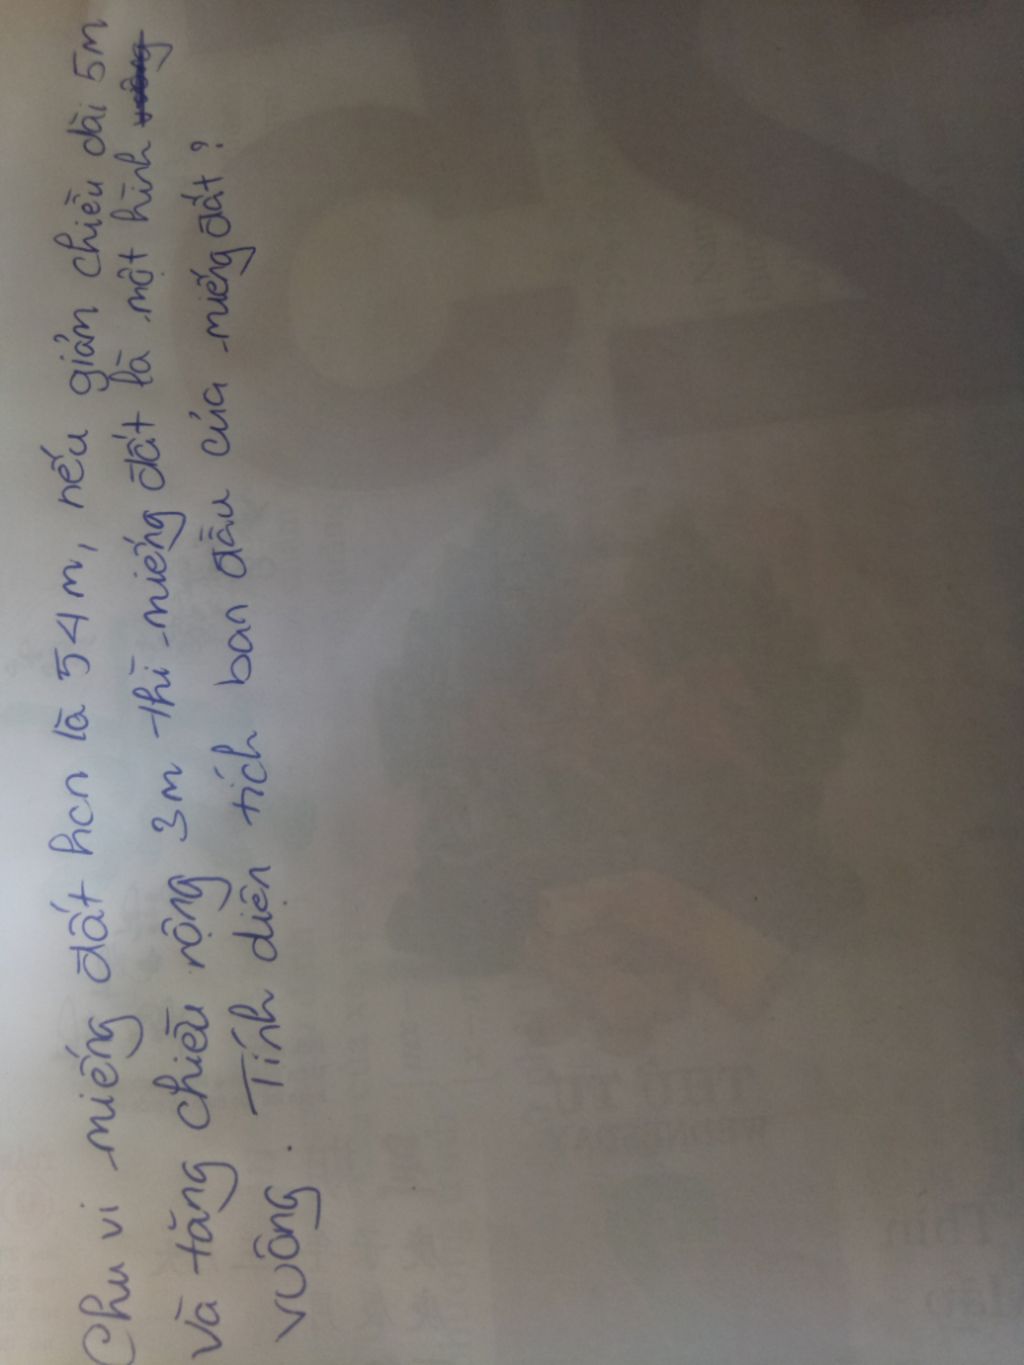 Chu vi miếng đất hcn là 54m, nếu giảm chiều dài 5m
và tăng chiều rộng 3m thì miếng đất là một hình
vuông. Tính diện tích ban đầu của miếng đất?
THỨ TƯ
WEDNESDAY
Thìn